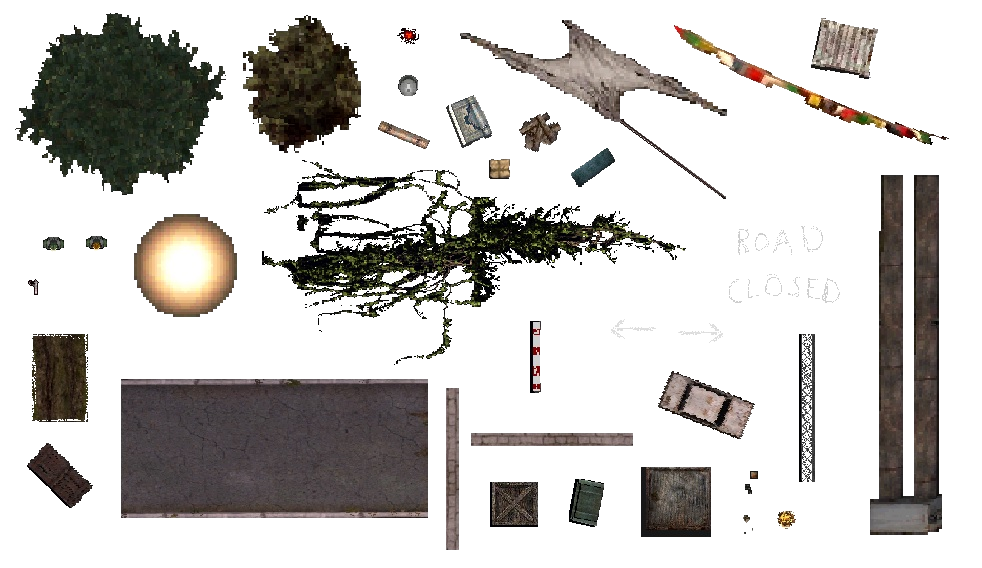 ROAD
CLOSED